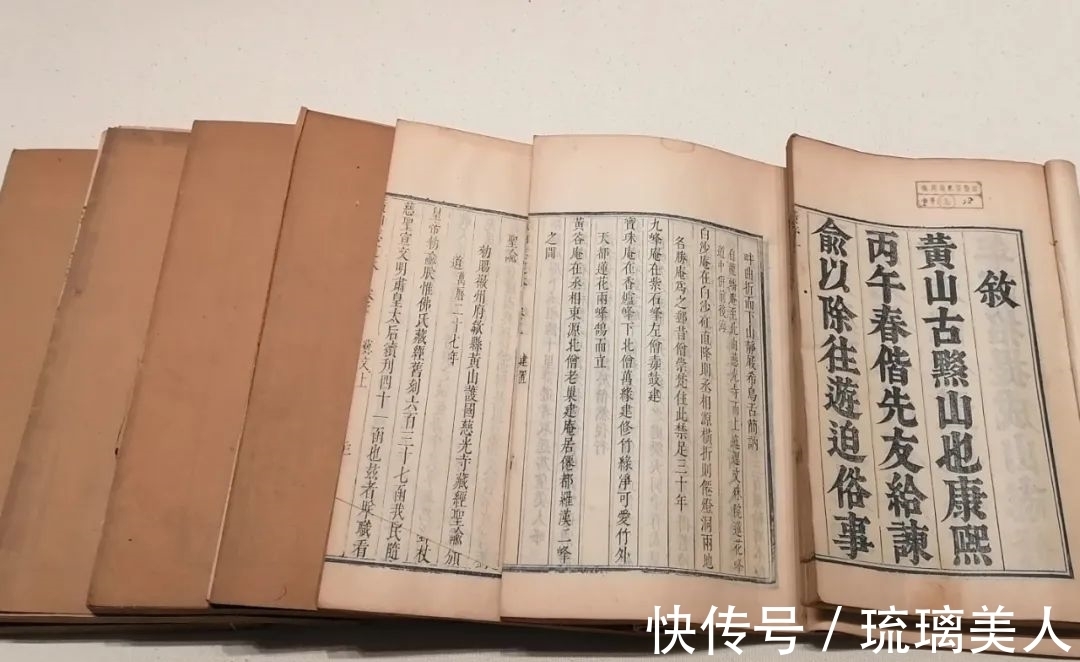 敘
黃山古黟山也康熙
丙午春偕先友給諫
俞以除往遊迫俗事
畔曲折而下山靜展希鳥古簡訥
白沙庵在白沙矼直降則丞相源橫折則僊燈洞兩地
名勝庵爲之郵昔僧崇梵住此禁足三十年
九峰庵在紫石峰左僧毒鼓建
寶珠庵在香爐峰下北僧萬緣建修竹綠淨可愛竹外
天都蓮花兩峰鵠而立
黃谷庵在丞相東源北僧老巢建庵居僊都羅漢二峰
之間
建置
聖諭
道萬曆二十七年
勑賜徽州府歙縣黃山護國慈光寺藏經聖諭頒
皇帝勑諭朕惟佛氏藏經舊刻六百三十七函我民隨
慈聖宣文明肅皇太后續刊四十一函也茲者眸職看
藝文上
三
快传号 / 琉璃美人